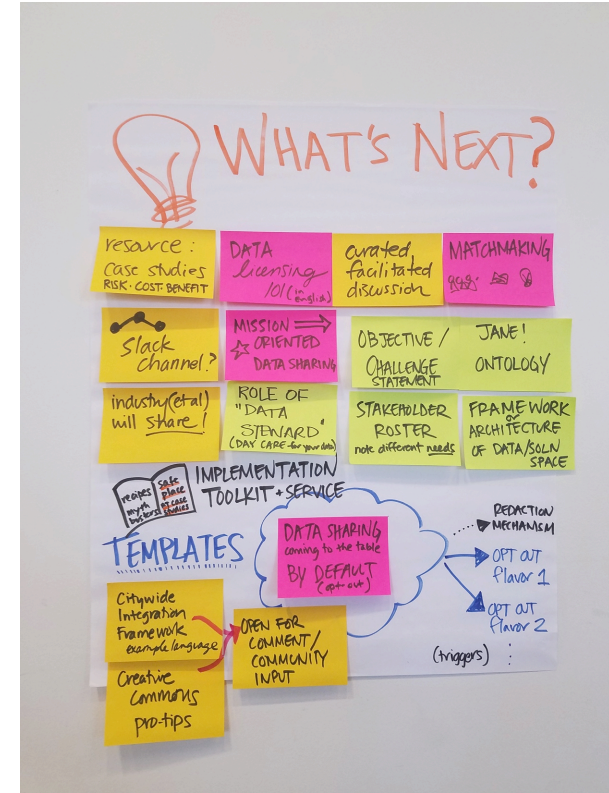 WHAT'S NEXT?
resource:
case studies
RISK·COST·BENEFIT
DATA
licensing
101 (in
english)
curated
facilitated
discussion
MATCHMAKING
Slack
channel?
MISSION
ORIENTED
DATA SHARING
OBJECTIVE /
CHALLENGE
STATEMENT
JANE!
ONTOLOGY
industry (et al)
will share!
ROLE OF
"DATA
STEWARD"
(DAY CARE for your data)
STAKEHOLDER
ROSTER
note different needs
FRAMEWORK
or
ARCHITECTURE
OF DATA/SOLN
SPACE
recipes
myth
busters
safe
place
studies
IMPLEMENTATION
TOOLKIT + SERVICE
TEMPLATES
DATA SHARING
coming to the table
BY DEFAULT
(opt-out)
REDACTION
MECHANISM
OPT OUT
flavor 1
OPT OUT
flavor 2
(triggers)
Citywide
Integration
Framework
example language
OPEN FOR
COMMENT/
COMMUNITY
INPUT
Creative
Commons
pro-tips